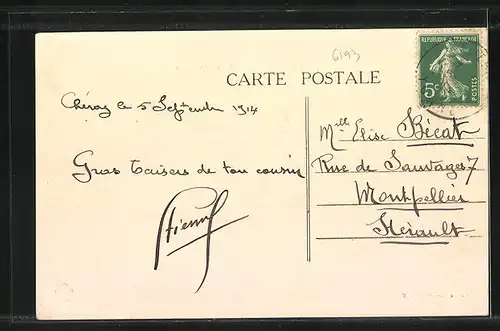 6193
REPUBLIQUE FRANÇAISE
5c
POSTES
CARTE POSTALE
le 5 Septembre 1914
Gros baisers de ton cousin
Mlle Elise Bécat
Rue de Sauvages 7
Montpellier
Hérault